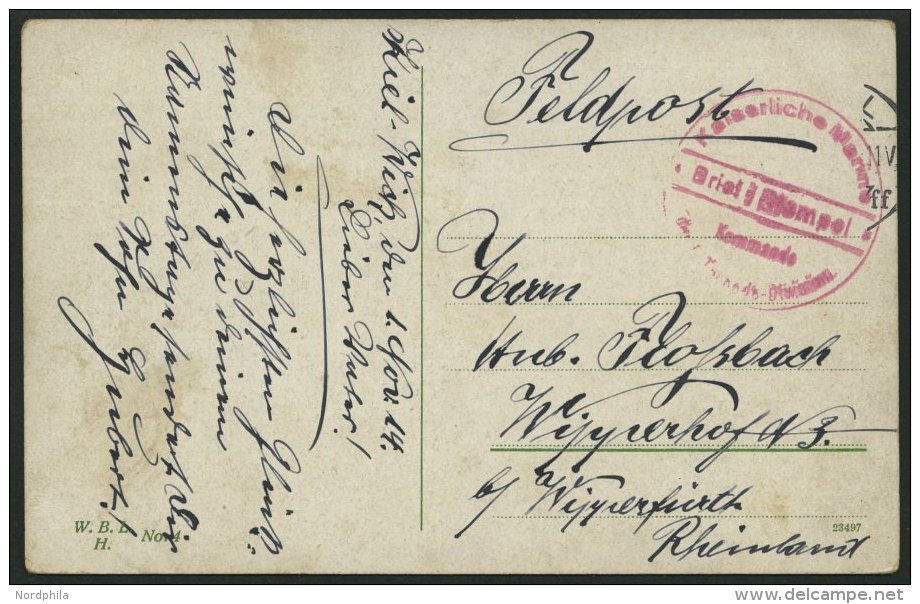 Kiel-Wik, den 1. Nov. 14.
Lieber Vater!
Die herzlichsten Glück-
wünsche zu deinem
Namenstage sendet Dir
dein Sohn Hubert.
Feldpost
Kaiserliche Marine
Brief Stempel
Kommando
Torpedo-Division.
Herrn
Hub. Floßbach
Wipperhof No 3.
b/ Wipperfürth
Rheinland
W. B. L.
H.
No. 4
23497
Nordphila
delcampe.net